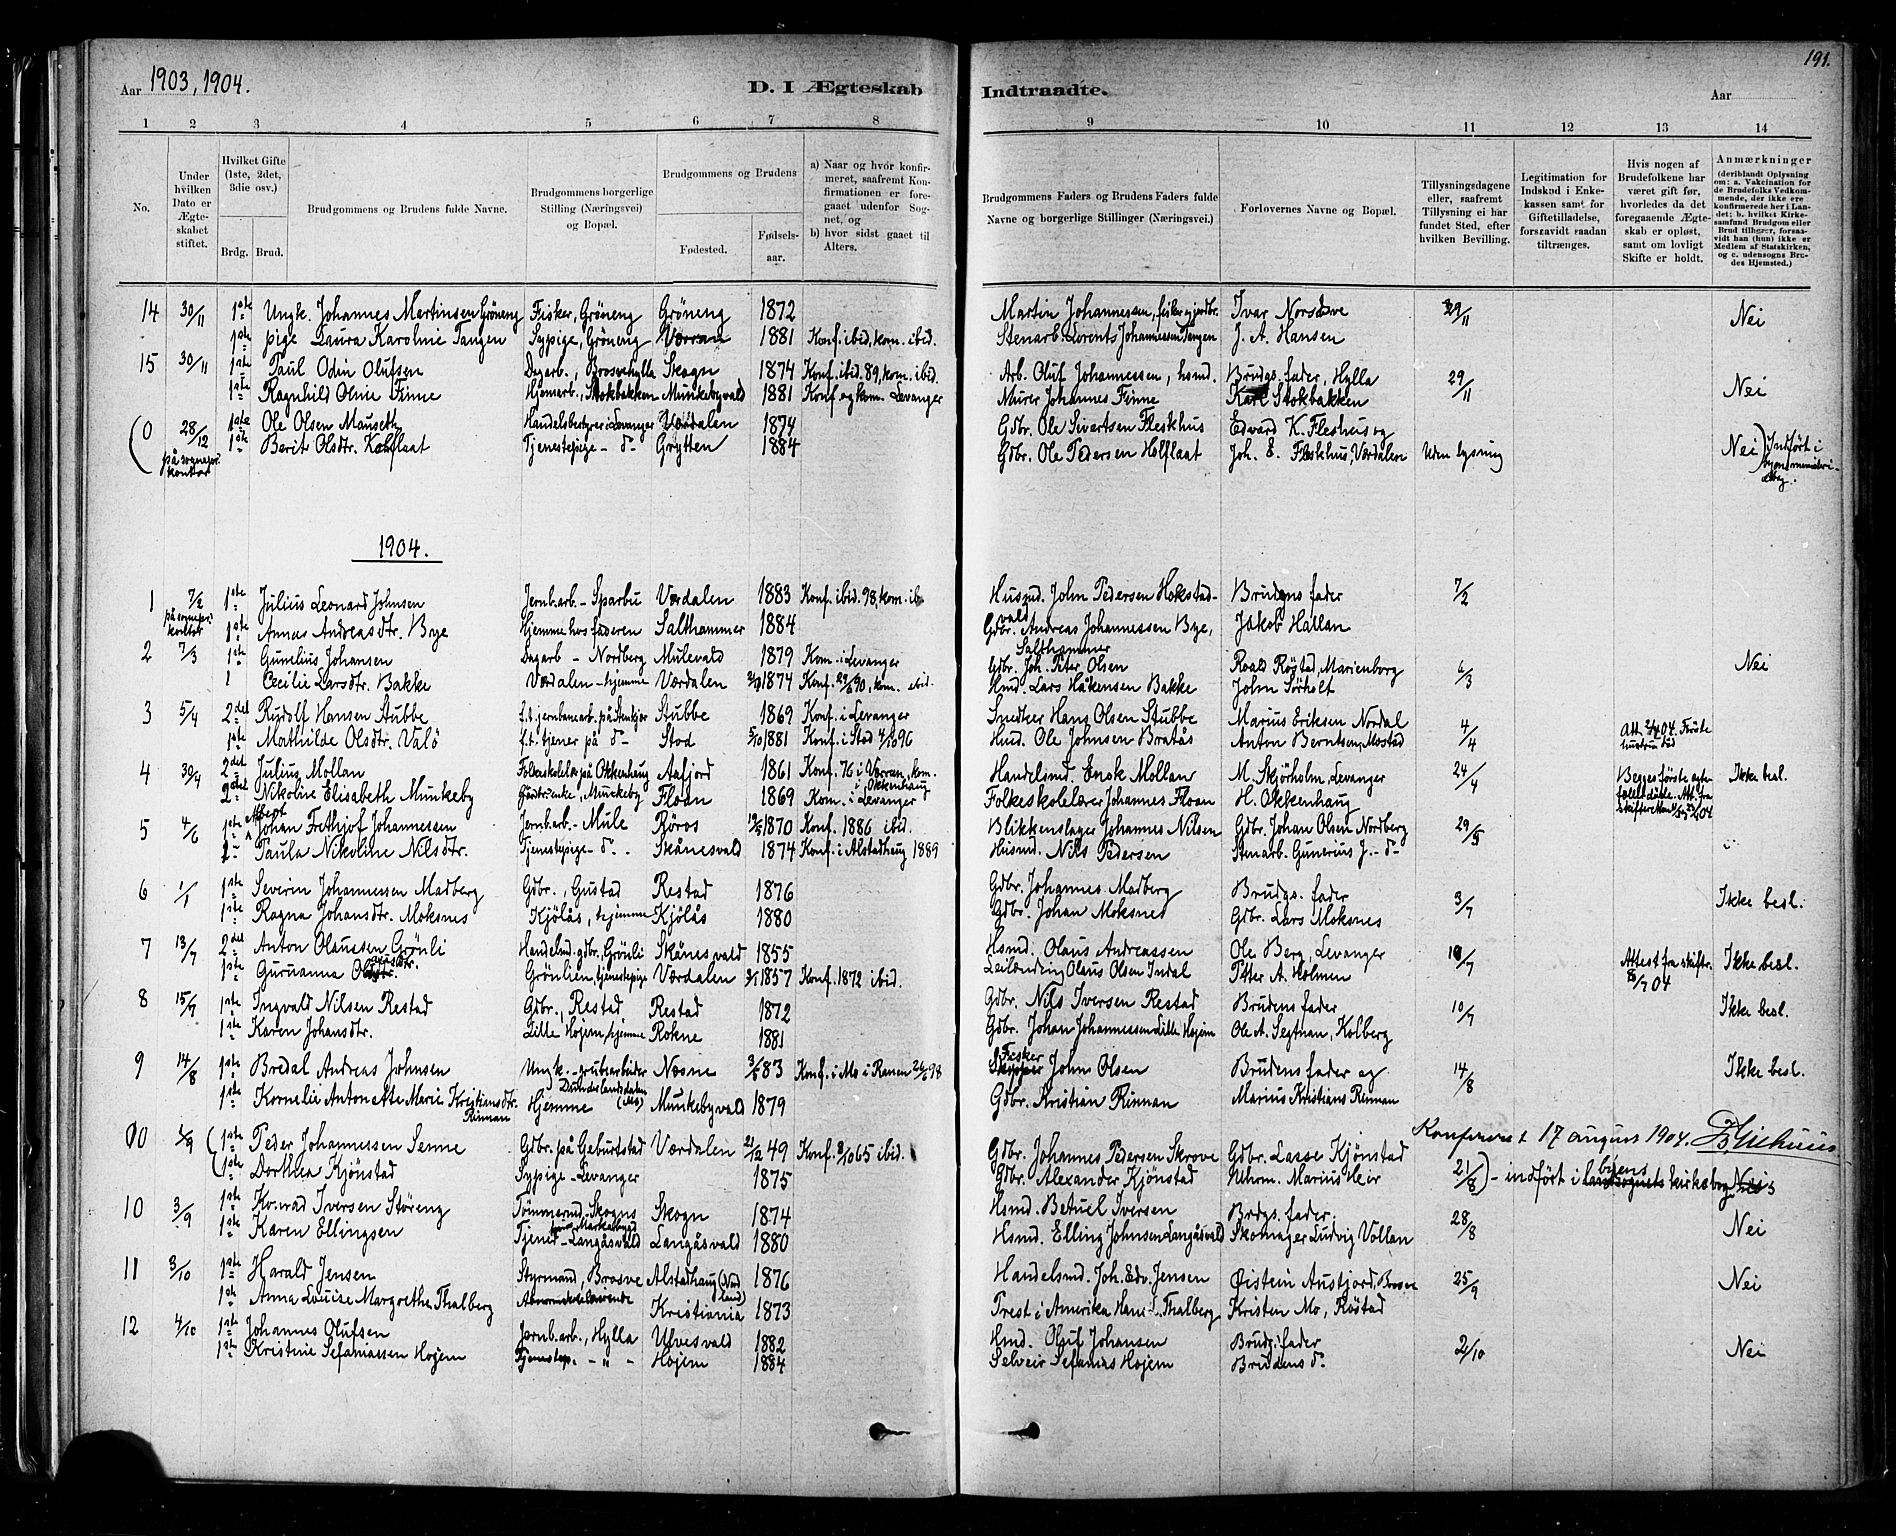 191.
Aar 1903, 1904.
D. I Ægteskab Indtraadte.
Aar
1 2 3 4 5 6 7 8 9 10 11 12 13 14
No.
Under hvilken Dato er Ægteskabet stiftet.
Hvilket Gifte (1ste, 2det, 3die osv.)
Brdg. Brud.
Brudgommens og Brudens fulde Navne.
Brudgommens borgerlige Stilling (Næringsvei) og Bopæl.
Brudgommens og Brudens
Fødested.
Fødselsaar.
a) Naar og hvor konfirmeret, saafremt Konfirmationen er foregaaet udenfor Sognet, og
b) hvor sidst gaaet til Alters.
Brudgommens Faders og Brudens Faders fulde Navne og borgerlige Stillinger (Næringsvei.)
Forlovernes Navne og Bopæl.
Tillysningsdagene eller, saafremt Tillysning ei har fundet Sted, efter hvilken Bevilling.
Legitimation for Indskud i Enkekassen samt for Giftetilladelse, forsaavidt saadan tiltrænges.
Hvis nogen af Brudefolkene har været gift før, hvorledes da det foregaaende Ægteskab er opløst, samt om lovligt Skifte er holdt.
Anmærkninger (deriblandt Oplysning om: a. Vakcination for de Brudefolks Vedkommende, der ikke ere konfirmerede her i Landet; b. hvilket Kirkesamfund Brudgom eller Brud tilhører, forsaavidt han (hun) ikke er Medlem af Statskirken, og c. udensogns Brudes Hjemsted.)
14 30/11 1ste Ungk. Johannes Martinsen Gröneng Fisker, Gröneng Gröneng 1872 Martin Johannessen, fisker og jordbr. Ivar Norsdove 29/11 Nei
1ste pige Laura Karoline Tangen Sypige, Gröneng Værran 1881 Konf. ibid, kom. ibid. Stenarb. Lorents Johannessen Tangen J. A. Hansen
15 30/11 1ste Paul Odin Olufsen Dagarb., Brosvehylla Skogn 1874 Konf. ibid. 89, kom. ibid. Arb. Oluf Johannessen, hsmd. Brudgs. fader, Hylla 29/11 Nei
1ste Ragnhild Oline Finne Hjemarb., Stokbakken Munkebyvald 1881 Konf. og kom. Levanger Murer Johannes Finne Karl Stokbakken
(0 28/12 1ste Ole Olsen Mauseth Handelsbestyrer i Levanger Værdalen 1874 Gdbr. Ole Sivertsen Fleskhus Edvard K. Fleskhus og
på sogneprkontor 1ste Berit Olsdtr. Kolflaat Tjenestepige - d° Grytten 1884 Gdbr. Ole Pedersen Holflaat Joh. E. Fleskhus, Værdalen Uden lysning Nei) Indført i byens ministerialbog.
1904.
1 7/2 1ste Julius Leonard Johnsen Jernb.arb. - Sparbu Værdalen 1883 Konf. ibid. 98, kom. ib Husmd. John Pedersen Hokstadvald Brudgms fader 7/2
på sogneprkontor 1ste Annas Andreasdtr. Bye Hjemme hos faderen Salthammer 1884 Gdbr. Andreas Johannessen Bye, Salthammer Jakob Hallan
2 7/3 1ste Gunelius Johansen Dagarb - Nordberg Mulevald 1879 Kom. i Levanger Gdbr. Joh. Peter Olsen Roald Røstad, Marienborg 6/3 Nei
1 Cecilie Larsdtr. Bakke Værdalen - hjemme Værdalen 1874 Konf. 29/6 90, kom. ibid. Hmd. Lars Håkensen Bakke John Sørholt
3 5/4 2det Rudolf Hansen Stubbe f.t. jernbanearb. på Stenkjær Stubbe 1869 Konf. i Levanger Snedker Hans Olsen Stubbe Marius Eriksen Nordal 4/4 Att. 04. Første hustru død
1ste Mathilde Olsdtr. Valö f.t. tjener på d° Stod 5/10 1881 Konf. i Stod 4/10 96 Hmd. Ole Johnsen Bratås Anton Berntsen, Mostad
4 30/4 2det Julius Mollan Folkeskolelær. på Okkenhaug Aafjord 1861 Konf. 76 i Værran, kom. i Okkenhaug Handelsmd. Enok Mollan M. Skjørholm, Levanger 24/4 Begges første egtefæller døde. Att. fra skifteretten Ikke besl.
2det Nikoline Elisabeth Munkeby Gårdbr.enke, Munkeby Floan 1869 Kom. i Levanger Folkeskolelærer Johannes Floan H. Okkenhaug
5 4/6 1ste Albert Johan Frethjof Johannessen Jernb.arb. - Mule Röros 1870 Konf. 1886 ibid. Blikkenslager Johannes Nilsen Gdbr. Johan Olsen Nordberg 29/5
1 Paula Nikoline Nilsdtr. Tjenestepige - d° Skånesvald 1874 Konf. i Alstadhaug 1889 Husmd. Nils Pedersen Stenarb. Gunerius J. - d°
6 1/1 1ste Severin Johannessen Madberg Gdbr., Gustad Restad 1876 Gdbr. Johannes Madberg Brudgs. fader 3/7 Ikke besl.
1ste Ragna Johansdtr. Moksnes Kjölås, hjemme Kjölås 1880 Gdbr. Johan Moksnes Gdbr. Lars Moksnes
7 13/7 2det Anton Olaussen Grönli Handelsmd. gdbr. Grönli Skånesvald 1855 Hsmd. Olaus Andreassen Ole Berg, Levanger 10/7 Attest fra skiftr. 8/7 04 Ikke besl.
1ste Guruanna Olausdtr. Grönlien, tjenestepige Værdalen 1857 Konf. 1872 ibid. Leilending Olaus Olsen Indal Petter A. Holmen
8 15/7 1ste Ingvald Nilsen Restad Gdbr., Restad Restad 1872 Gdbr. Nils Iversen Restad Brudens fader 10/7 Ikke besl.
1ste Karen Johansdtr. Lille Hojem, hjemme Rokne 1881 Gdbr. Johan Johannessen Lille Hojem Ole A. Segtnan, Kolberg
9 14/8 1ste Bredal Andreas Johnsen Ungk. - grubearbeider Dunderlandsdalen (Mo) Nesne 3/5 83 Konf. i Mo i Ranen 26/6 98 Fisker John Olsen Brudens fader og 14/8 Ikke besl.
1ste Kornelia Antonette Marie Kristiansdtr. Rinnan Hjemme Munkebyvald 1879 Gdbr. Kristian Rinnan Marius Kristians Rinnan
Konfereret 17 august 1904.
00 2/9 (1ste Peder Johannessen Senne Gdbr. på Geburtstad Værdalen 21/12 49 Konf. 8/10 65 ibid. Gdbr. Johannes Pedersen Skrove Gdbr. Lasse Kjönstad
(1ste Dorthea Kjönstad Sypige - Levanger 1875 Gdbr. Alexander Kjönstad Uhrm. Marius Heir 21/8) - indført i byens kirkebog Nei
10 3/9 1ste Konrad Iversen Störeng Tömmermd. Skogns Skogn 1874 Hsmd. Betuel Iversen Brdgs. fader. 28/8 Nei
1ste Karen Ellingsen Tjener - Langåsvald Langåsvald 1880 Hsmd. Elling Johnsen Langåsvald Skomager Ludvig Vollan
11 3/10 1ste Harald Jensen Styrmand, Brosve Alstadhaug (Nordland) 1876 Handelsmd. Joh. Edv. Jensen Øistein Austfjord, Brosve 25/9 Nei
1ste Anna Louise Margrethe Thalberg Kristiania 1873 Prest i Amerika Hans L. Thalberg Kristen Mo, Röstad
12 4/10 1ste Johannes Olufsen Jernb.arb., Hylla Ulvesvald 1882 Hmd. Oluf Johansen Brudg. fader 2/10 Nei
1ste Kristine Sefaniassen Hojem Tjenestep. - " - Hojem 1884 Selveir Sefanias Hojem Brudens d°